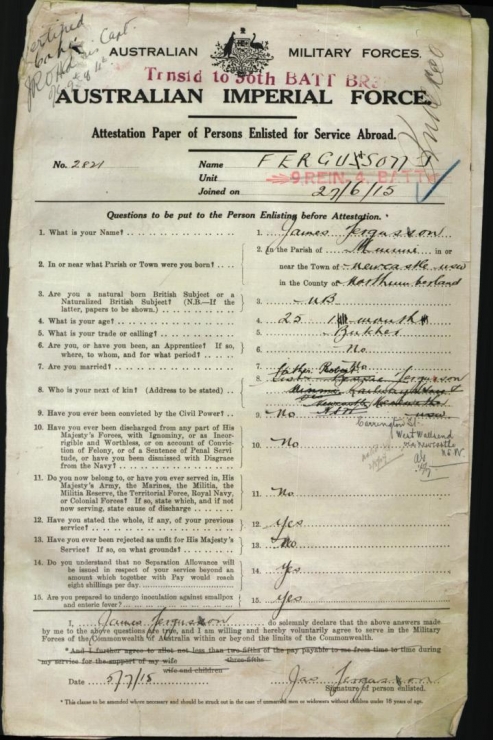 Certified
AUSTRALIAN MILITARY FORCES.
Trnsfd to 56th BATT
AUSTRALIAN IMPERIAL FORCE.
Attestation Paper of Persons Enlisted for Service Abroad.
No. 2821 Name FERGUSSON J
Unit 9 REIN. 4. BATT
Joined on 27/6/15
Questions to be put to the Person Enlisting before Attestation.
1. What is your Name? 1. James Fergusson
2. In or near what Parish or Town were you born? 2. In the Parish of Minmi in or
near the Town of Newcastle NSW
in the County of Northumberland
3. Are you a natural born British Subject or a
Naturalized British Subject? (N.B.—If the
latter, papers to be shown.) 3. NB
4. What is your age? 4. 25 1 month
5. What is your trade or calling? 5. Butcher
6. Are you, or have you been, an Apprentice? If so,
where, to whom, and for what period? 6. No
7. Are you married? 7. No
8. Who is your next of kin? (Address to be stated) 8. father Robert Fergusson
Minmi
Carrington St.
West Wallsend
via Newcastle
N.S.W.
9. Have you ever been convicted by the Civil Power? 9. No
10. Have you ever been discharged from any part of His
Majesty's Forces, with Ignominy, or as Incor-
rigible and Worthless, or on account of Convic-
tion of Felony, or of a Sentence of Penal Servi-
tude, or have you been dismissed with Disgrace
from the Navy? 10. No
11. Do you now belong to, or have you ever served in, His
Majesty's Army, the Marines, the Militia, the
Militia Reserve, the Territorial Force, Royal Navy,
or Colonial Forces? If so, state which, and if not
now serving, state cause of discharge 11. No
12. Have you stated the whole, if any, of your previous
service? 12. Yes
13. Have you ever been rejected as unfit for His Majesty's
Service? If so, on what grounds? 13. No
14. Do you understand that no Separation Allowance will
be issued in respect of your service beyond an
amount which together with Pay would reach
eight shillings per day 14. Yes
15. Are you prepared to undergo inoculation against smallpox
and enteric fever? 15. Yes
I, James Fergusson do solemnly declare that the above answers made
by me to the above questions are true, and I am willing and hereby voluntarily agree to serve in the Military
Forces of the Commonwealth of Australia within or beyond the limits of the Commonwealth.
*And I further agree to allot not less than two-fifths of the pay payable to me from time to time during
three-fifths
my service for the support of my wife
wife and children
Date 5/7/15 Jas Fergusson
Signature of person enlisted.
*This clause to be amended where necessary and should be struck out in the case of unmarried men or widowers without children under 18 years of age.